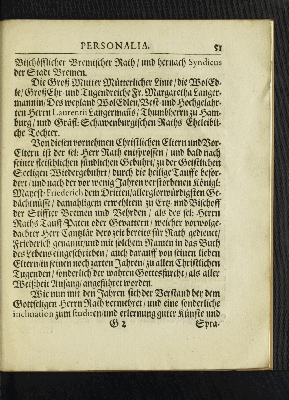 PERSONALIA. 51
Bischöfflicher Bremischer Rath / und hernach Syndicus
der Stadt Bremen.
Die Groß Mutter Mütterlicher Linie / die WolEd-
le / GroßEhr- und Tugendreiche Fr. Margaretha Langer-
mannin / Des weyland WolEdlen / Vest- und Hochgelahr-
ten Herrn Laurentii Langermanns / Thumbherrn zu Ham-
burg / und Gräffl. Schawenburgischen Raths Eheleibli-
che Tochter.
Von diesen vornehmen Christlichen Eltern und Vor-
Eltern ist der sel: Herr Rath entsprossen / und bald nach
seiner fleischlichen sündlichen Gebuhrt / zu der Geistlichen
Seeligen Wiedergebuhrt / durch die heilige Tauffe beför-
dert / und nach der vor wenig Jahren verstorbenen Königl:
Mayest: Friederich dem Dritten / allerglorwürdigsten Ge-
dächtnüße / damahligem erwehltem zu Ertz- und Bischoff
der Stiffter Bremen und Vehrden / als des sel: Herrn
Raths Tauff-Paten oder Gevattern / welcher vorwolge-
dachter Herr Cantzlar derozeit bereits für Rath gedienet /
Friederich genannt / und mit solchem Namen in das Buch
des Lebens eingeschrieben / auch darauf von seinen lieben
Eltern in seinen noch zarten Jahren / zu allen Christlichen
Tugenden / sonderlich der wahren Gottesfurcht / als aller
Weißheit Anfang / angeführet worden.
Wie nun mit den Jahren sich der Verstand bey dem
Gottseligen Herrn Rath vermehret / und eine sonderliche
inclination zum studiren und erlernung guter Künste und
G 2 Spra-